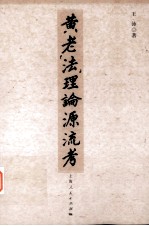 黄老「法」理論源流考
王沛◎著
上海人民出版社